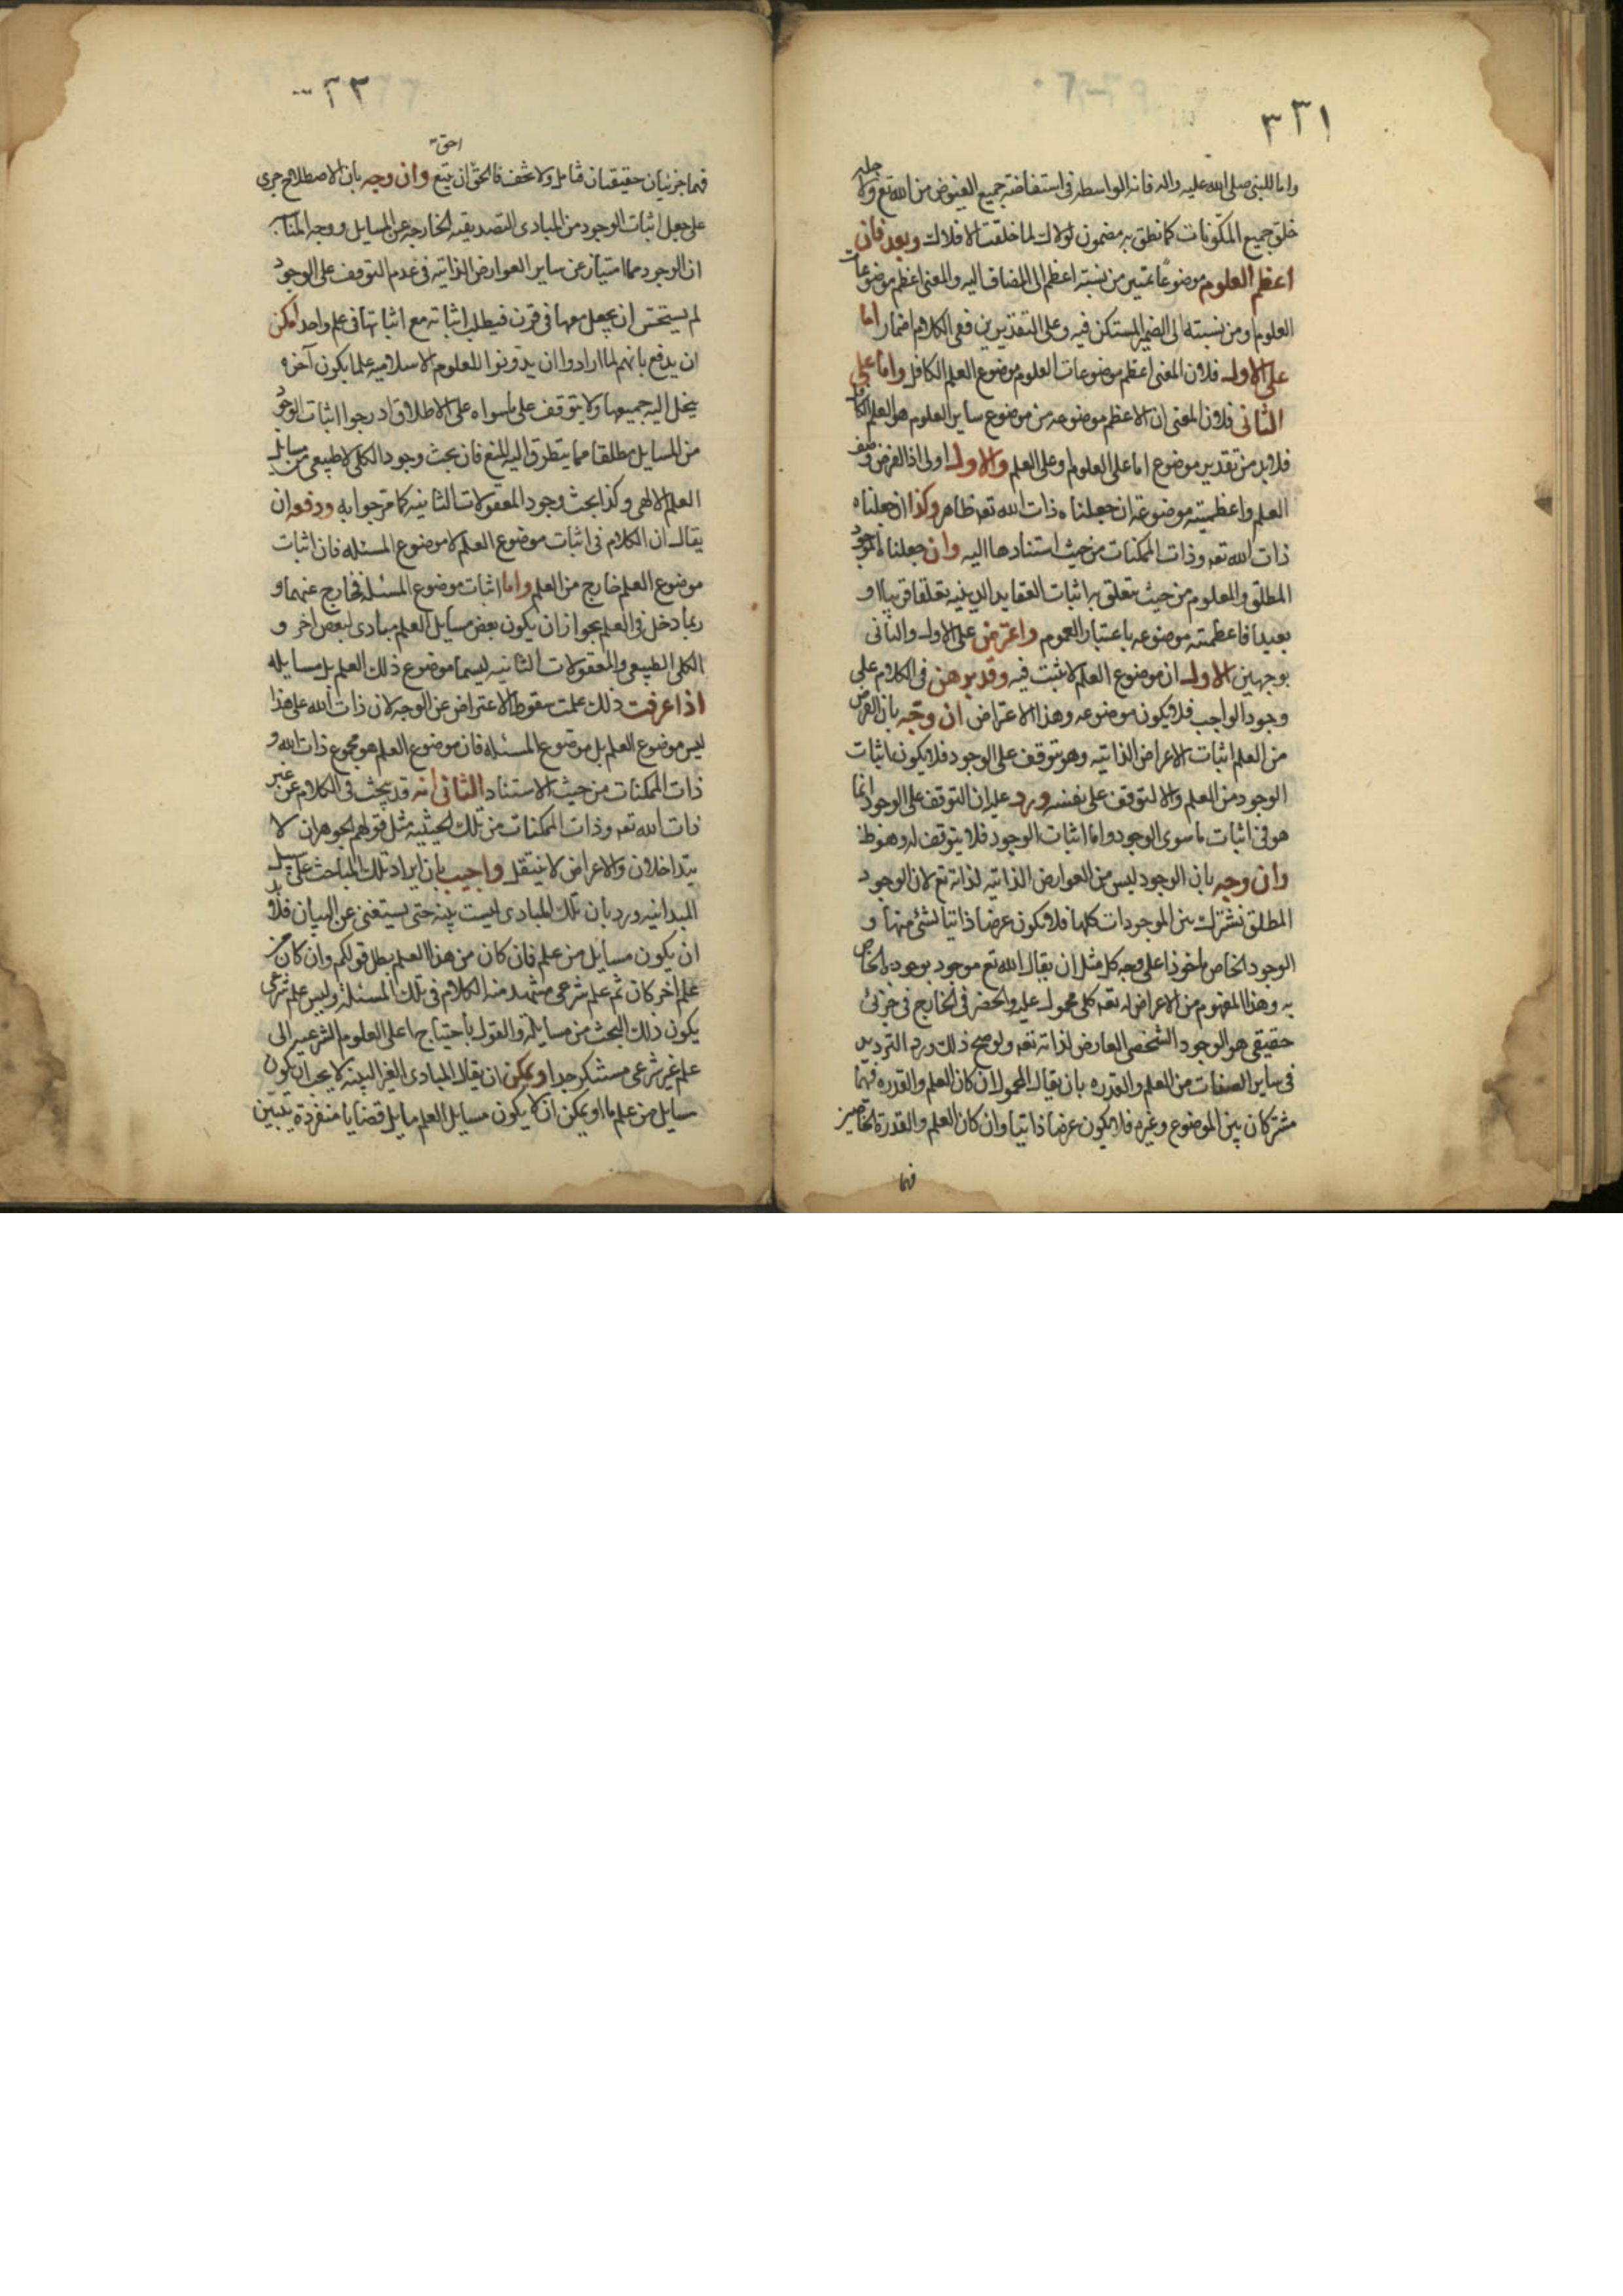 ٣٣١
واما للنبى صلى الله عليه واله فانه الواسطه فى استفاضة جميع الفيوض من الله تع ولاجله
خلق جميع المكونات كما نطق به مضمون لولاك لما خلقت الافلاك وبعد فان
اعظم العلوم موضوعا تميز من نسبة اعظم الى المضاف اليه والمعنى اعظم موضوعات
العلوم او من نسبته الى الضمير المستكن فيه وعلى التقديرين ففى الكلام اضمار اما
على الاول فلان المعنى اعظم موضوعات العلوم موضوع العلم الكافل واما على
الثانى فلان المعنى ان الاعظم موضوعه من موضوع ساير العلوم هو العلم الكافل
فلابد من تقدير موضوع اما على العلوم او على العلم والاول اولى اذ الغرض وصف
العلم واعظمية موضوعه ان جعلناه ذات الله تعه ظاهر وكذا ان جعلناه
ذات الله تعه وذات الممكنات من حيث استنادها اليه وان جعلناه الموجود
المطلق والمعلوم من حيث تعلق به اثبات العقايد الدينيه تعلقا قريبا او
بعيدا فاعظمية موضوعه باعتبار العموم واعترض على الاول والثانى
بوجهين الاول ان موضوع العلم لا يثبت فيه وقد برهن فى الكلام على
وجود الواجب فلا يكون موضوعه وهذا الاعتراض ان وجه بان الغرض
من العلم اثبات الاعراض الذاتيه وهو يتوقف على الوجود فلا يكون اثبات
الوجود من العلم والا لتوقف على نفسه ورد عليه ان التوقف على الوجود انما
هو فى اثبات ما سوى الوجود واما اثبات الوجود فلا يتوقف له وهو ظ
وان وجه بان الوجود ليس من العوارض الذاتيه لذاته تع لان الوجود
المطلق مشترك بين الموجودات كلها فلا يكون عرضا ذاتيا لشئ منها و
الوجود الخاص ماخوذا على وجه كل مثل ان يقال الله تع موجود بوجوده الخاص
به وهذا المفهوم من الاعراض له تعه كلى محمول عليه وانحصر فى الخارج فى جزئى
حقيقى هو الوجود الشخصى العارض لذاته تعه ولو صح ذلك ورد الترديد
فى ساير الصفات من العلم والقدره بان يقال المحمول ان كان العلم والقدره فهما
مشتركان بين الموضوع وغيره فلا يكون عرضا ذاتيا وان كان العلم والقدرة الخاصين
فهما
٣٣
احق
فهما جزئيان حقيقيان فتامل ولا تخف فالحق ان يتبع وان وجه بان الاصطلاح جرى
على جعل اثبات الوجود من المبادى التصديقيه الخارجه عن المسايل ووجه المناسبه
ان الوجود مما امتياز عن ساير العوارض الذاتيه فى عدم التوقف على الوجود
لم يستحسن ان يجعل معها فى قرن فيطلب اثباته مع اثباتها فى علم واحد امكن
ان يدفع بانهم لما ارادوا ان يدونوا للعلوم الاسلاميه علما يكون آخره
ينحل اليه جميعها ولا يتوقف على ما سواه على الاطلاق ادرجوا اثبات الوجود
من المسايل مطلقا مما يتطرق اليه المنع فان بحث وجود الكلى الطبيعى من مسايل
العلم الالهى وكذا بحث وجود المعقولات الثانيه كما مر جوابه ودفعه ان
يقال ان الكلام فى اثبات موضوع العلم لا موضوع المسئله فان اثبات
موضوع العلم خارج من العلم واما اثبات موضوع المسئله فخارج عنهما و
ربما دخل فى العلم بجواز ان يكون بعض مسايل العلم مبادى لبعض اخر و
الكلى الطبيعى والمعقولات الثانيه ليسما موضوع ذلك العلم بل مسايله
اذا عرفت ذلك علمت سقوط الاعتراض عن الوجه لان ذات الله على هذا
ليس موضوع العلم بل موضوع المسئله فان موضوع العلم هو مجموع ذات الله و
ذات الممكنات من حيث الاستناد الثانى انه قد يبحث فى الكلام عن غير
ذات الله تعه وذات الممكنات من تلك الحيثيه مثل قولهم الجوهران لا
يتداخلان والاعراض لا ينتقل واجيب بان ايراد تلك المباحث على سبيل
المبدائيه ورد بان تلك المبادى ليست بينه حتى يستغنى عن البيان فلابد
ان يكون مسايل من علم فان كان من هذا العلم بطل قولكم وان كان من
علم اخر كان ثم علم شرعى مستمد منه الكلام فى تلك المسئلة وليس علم شرعى
يكون ذلك البحث من مسايله والقول باحتياج اعلى العلوم الشرعيه الى
علم غير شرعى مستنكر جدا ويمكن ان يقال المبادى الغير البينه لا يجب ان يكون
مسايل من علم ما او يمكن ان لا يكون مسايل العلم مايل قضايا منفردة تتبين